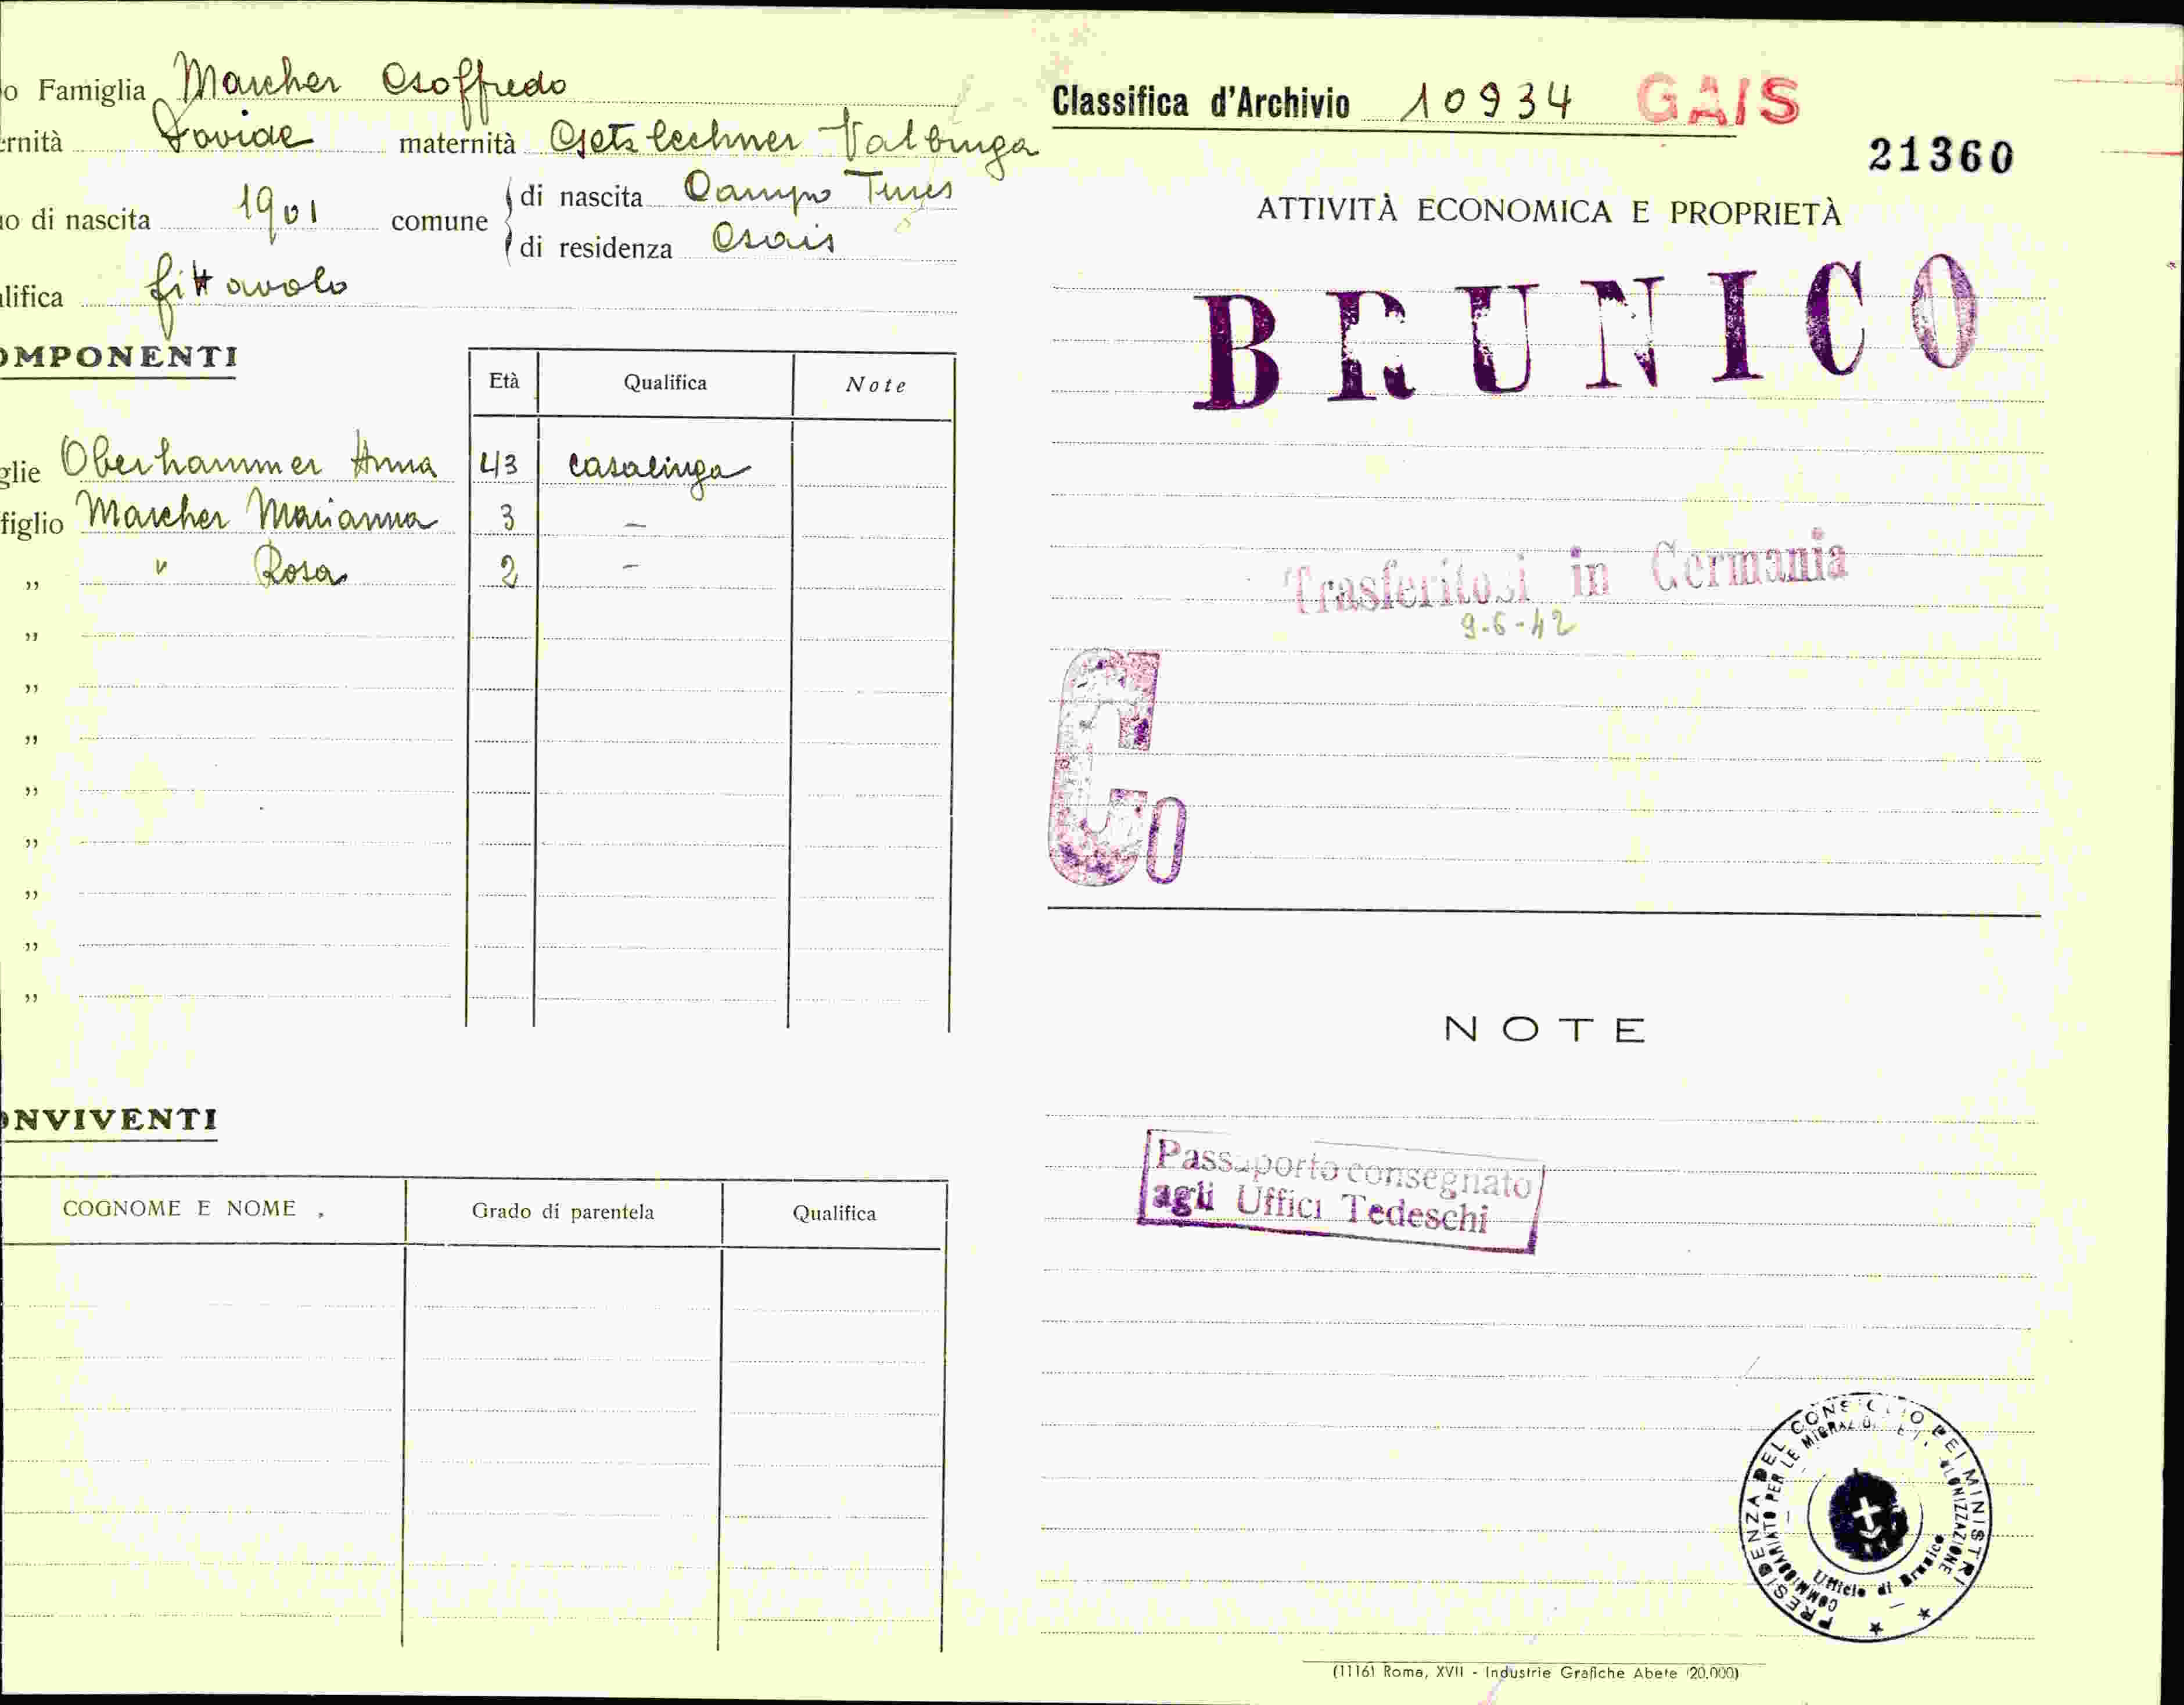 o Famiglia Marcher Goffredo
ernità Davide maternità Gatzlechner Valburga
no di nascita 1901 comune di nascita Campo Tures
di residenza Gais
alifica fittavolo
OMPONENTI
Età Qualifica Note
glie Oberhammer Anna 43 casalinga
figlio Marcher Marianna 3 —
„ " Rosa 2 —
„
„
„
„
„
„
„
„
ONVIVENTI
COGNOME E NOME Grado di parentela Qualifica
Classifica d'Archivio 10934 GAIS
21360
ATTIVITÀ ECONOMICA E PROPRIETÀ
BRUNICO
Trasferitosi in Germania
9-6-42
Co
NOTE
Passaporto consegnato
agli Uffici Tedeschi
PRESIDENZA DEL CONSIGLIO DEI MINISTRI
COMMISSARIATO PER LE MIGRAZIONI E LA COLONIZZAZIONE
Ufficio di Brunico
(1116) Roma, XVII - Industrie Grafiche Abete (20.000)